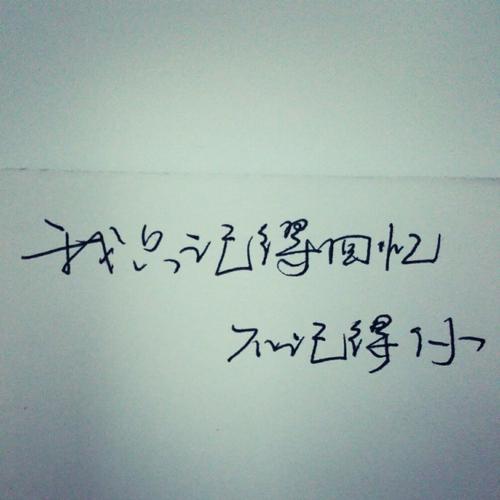 我只记得回忆
不记得你